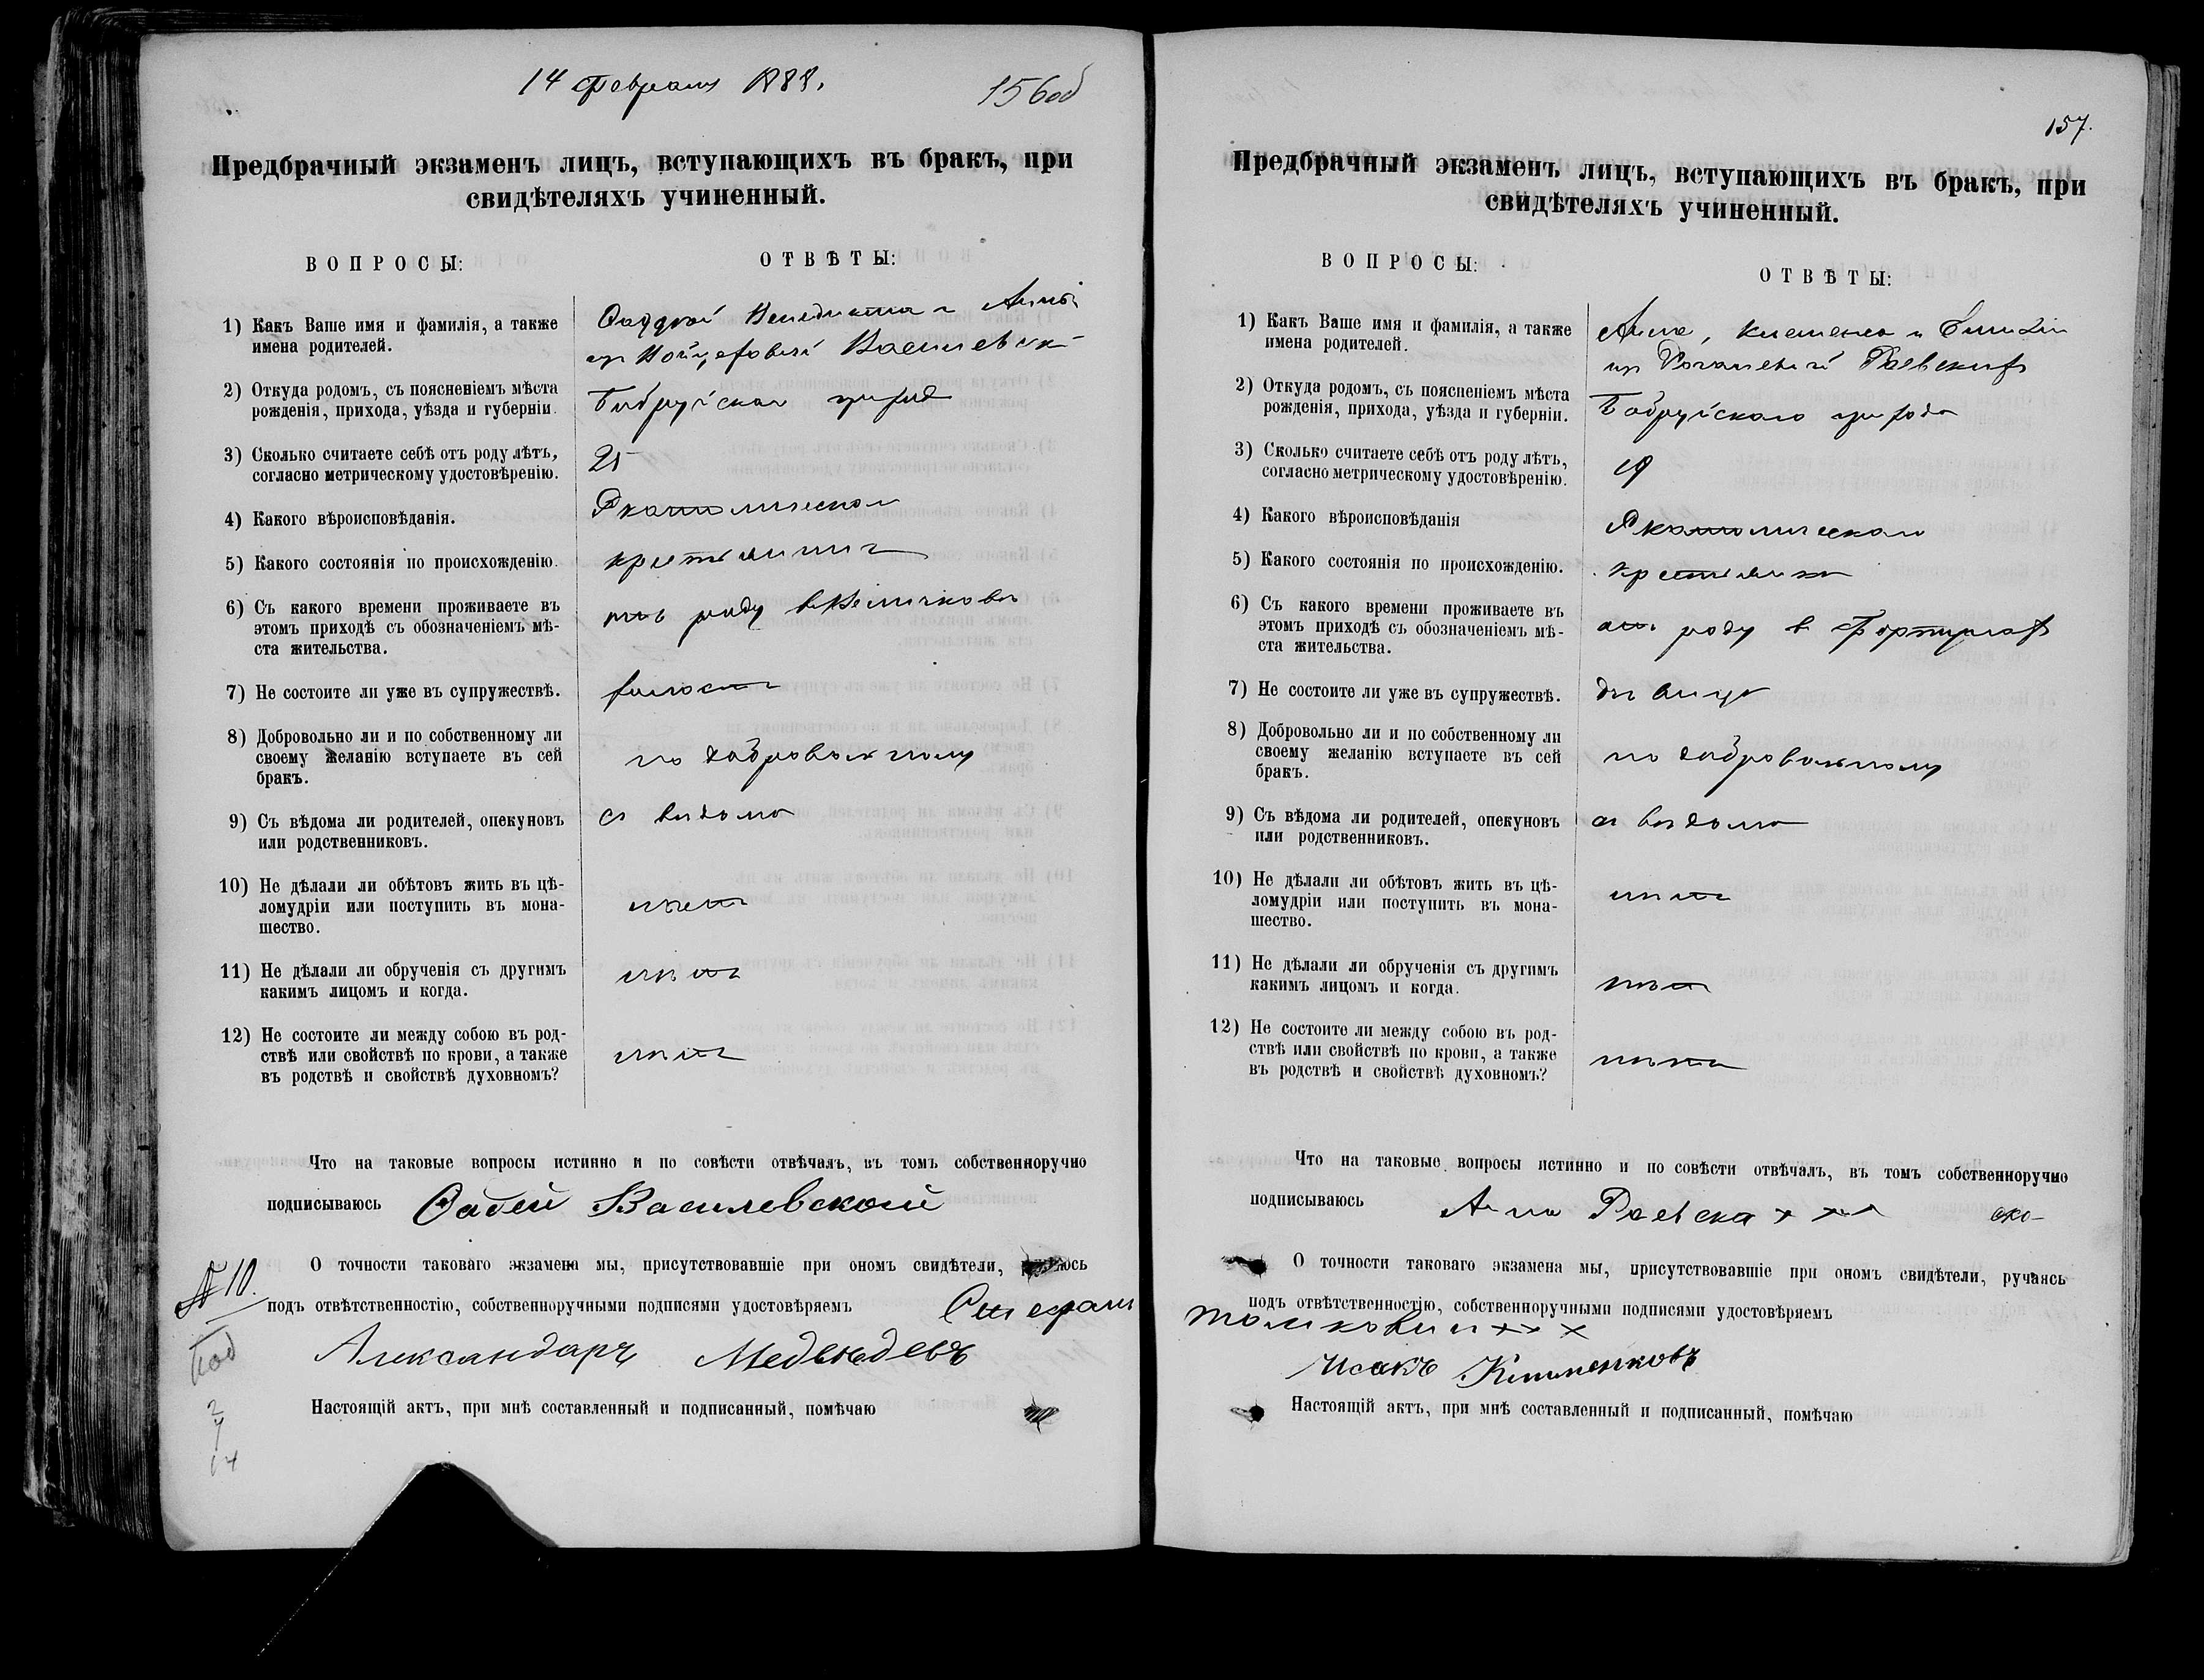 14 Февраля 1888.
156 об
Предбрачный экзаменъ лицъ, вступающихъ въ бракъ, при
свидѣтеляхъ учиненный.
ВОПРОСЫ:
ОТВѢТЫ:
1) Какъ Ваше имя и фамилія, а также
имена родителей.
Венедикта и Анны
Василевскій
2) Откуда родомъ, съ поясненіемъ мѣста
рожденія, прихода, уѣзда и губерніи.
3) Сколько считаете себѣ отъ роду лѣтъ,
согласно метрическому удостовѣренію.
25
4) Какого вѣроисповѣданія.
Р католическаго
5) Какого состоянія по происхожденію.
крестьянинъ
6) Съ какого времени проживаете въ
этомъ приходѣ съ обозначеніемъ мѣ-
ста жительства.
отъ роду в
7) Не состоите ли уже въ супружествѣ.
холостъ
8) Добровольно ли и по собственному ли
своему желанію вступаете въ сей
бракъ.
по добровольному
9) Съ вѣдома ли родителей, опекуновъ
или родственниковъ.
съ вѣдома
10) Не дѣлали ли обѣтовъ жить въ цѣ-
ломудріи или поступить въ мона-
шество.
нѣтъ
11) Не дѣлали ли обрученія съ другимъ
какимъ лицомъ и когда.
нѣтъ
12) Не состоите ли между собою въ род-
ствѣ или свойствѣ по крови, а также
въ родствѣ и свойствѣ духовномъ?
нѣтъ
Что на таковые вопросы истинно и по совѣсти отвѣчалъ, въ томъ собственноручно
подписываюсь Фадей Василевской
№ 10.
О точности таковаго экзамена мы, присутствовавшіе при ономъ свидѣтели,
подъ отвѣтственностію, собственноручными подписями удостовѣряемъ
Александаръ Медвѣдевъ
Настоящій актъ, при мнѣ составленный и подписанный, помѣчаю
2
7
14
157.
Предбрачный экзаменъ лицъ, вступающихъ въ бракъ, при
свидѣтеляхъ учиненный.
ВОПРОСЫ:
ОТВѢТЫ:
1) Какъ Ваше имя и фамилія, а также
имена родителей.
Анна, и Эмиліи
Раевскихъ
2) Откуда родомъ, съ поясненіемъ мѣста
рожденія, прихода, уѣзда и губерніи.
Бобруйскаго прихода
3) Сколько считаете себѣ отъ роду лѣтъ,
согласно метрическому удостовѣренію.
4) Какого вѣроисповѣданія
Р католическаго
5) Какого состоянія по происхожденію.
крестьянка
6) Съ какого времени проживаете въ
этомъ приходѣ съ обозначеніемъ мѣ-
ста жительства.
отъ роду в
7) Не состоите ли уже въ супружествѣ.
дѣвица
8) Добровольно ли и по собственному ли
своему желанію вступаете въ сей
бракъ.
по добровольному
9) Съ вѣдома ли родителей, опекуновъ
или родственниковъ.
съ вѣдома
10) Не дѣлали ли обѣтовъ жить въ цѣ-
ломудріи или поступить въ мона-
шество.
нѣтъ
11) Не дѣлали ли обрученія съ другимъ
какимъ лицомъ и когда.
нѣтъ
12) Не состоите ли между собою въ род-
ствѣ или свойствѣ по крови, а также
въ родствѣ и свойствѣ духовномъ?
нѣтъ
Что на таковые вопросы истинно и по совѣсти отвѣчалъ, въ томъ собственноручно
подписываюсь Анна Раевска × × ×
О точности таковаго экзамена мы, присутствовавшіе при ономъ свидѣтели, ручаясь
подъ отвѣтственностію, собственноручными подписями удостовѣряемъ
× × ×
Исакъ
Настоящій актъ, при мнѣ составленный и подписанный, помѣчаю